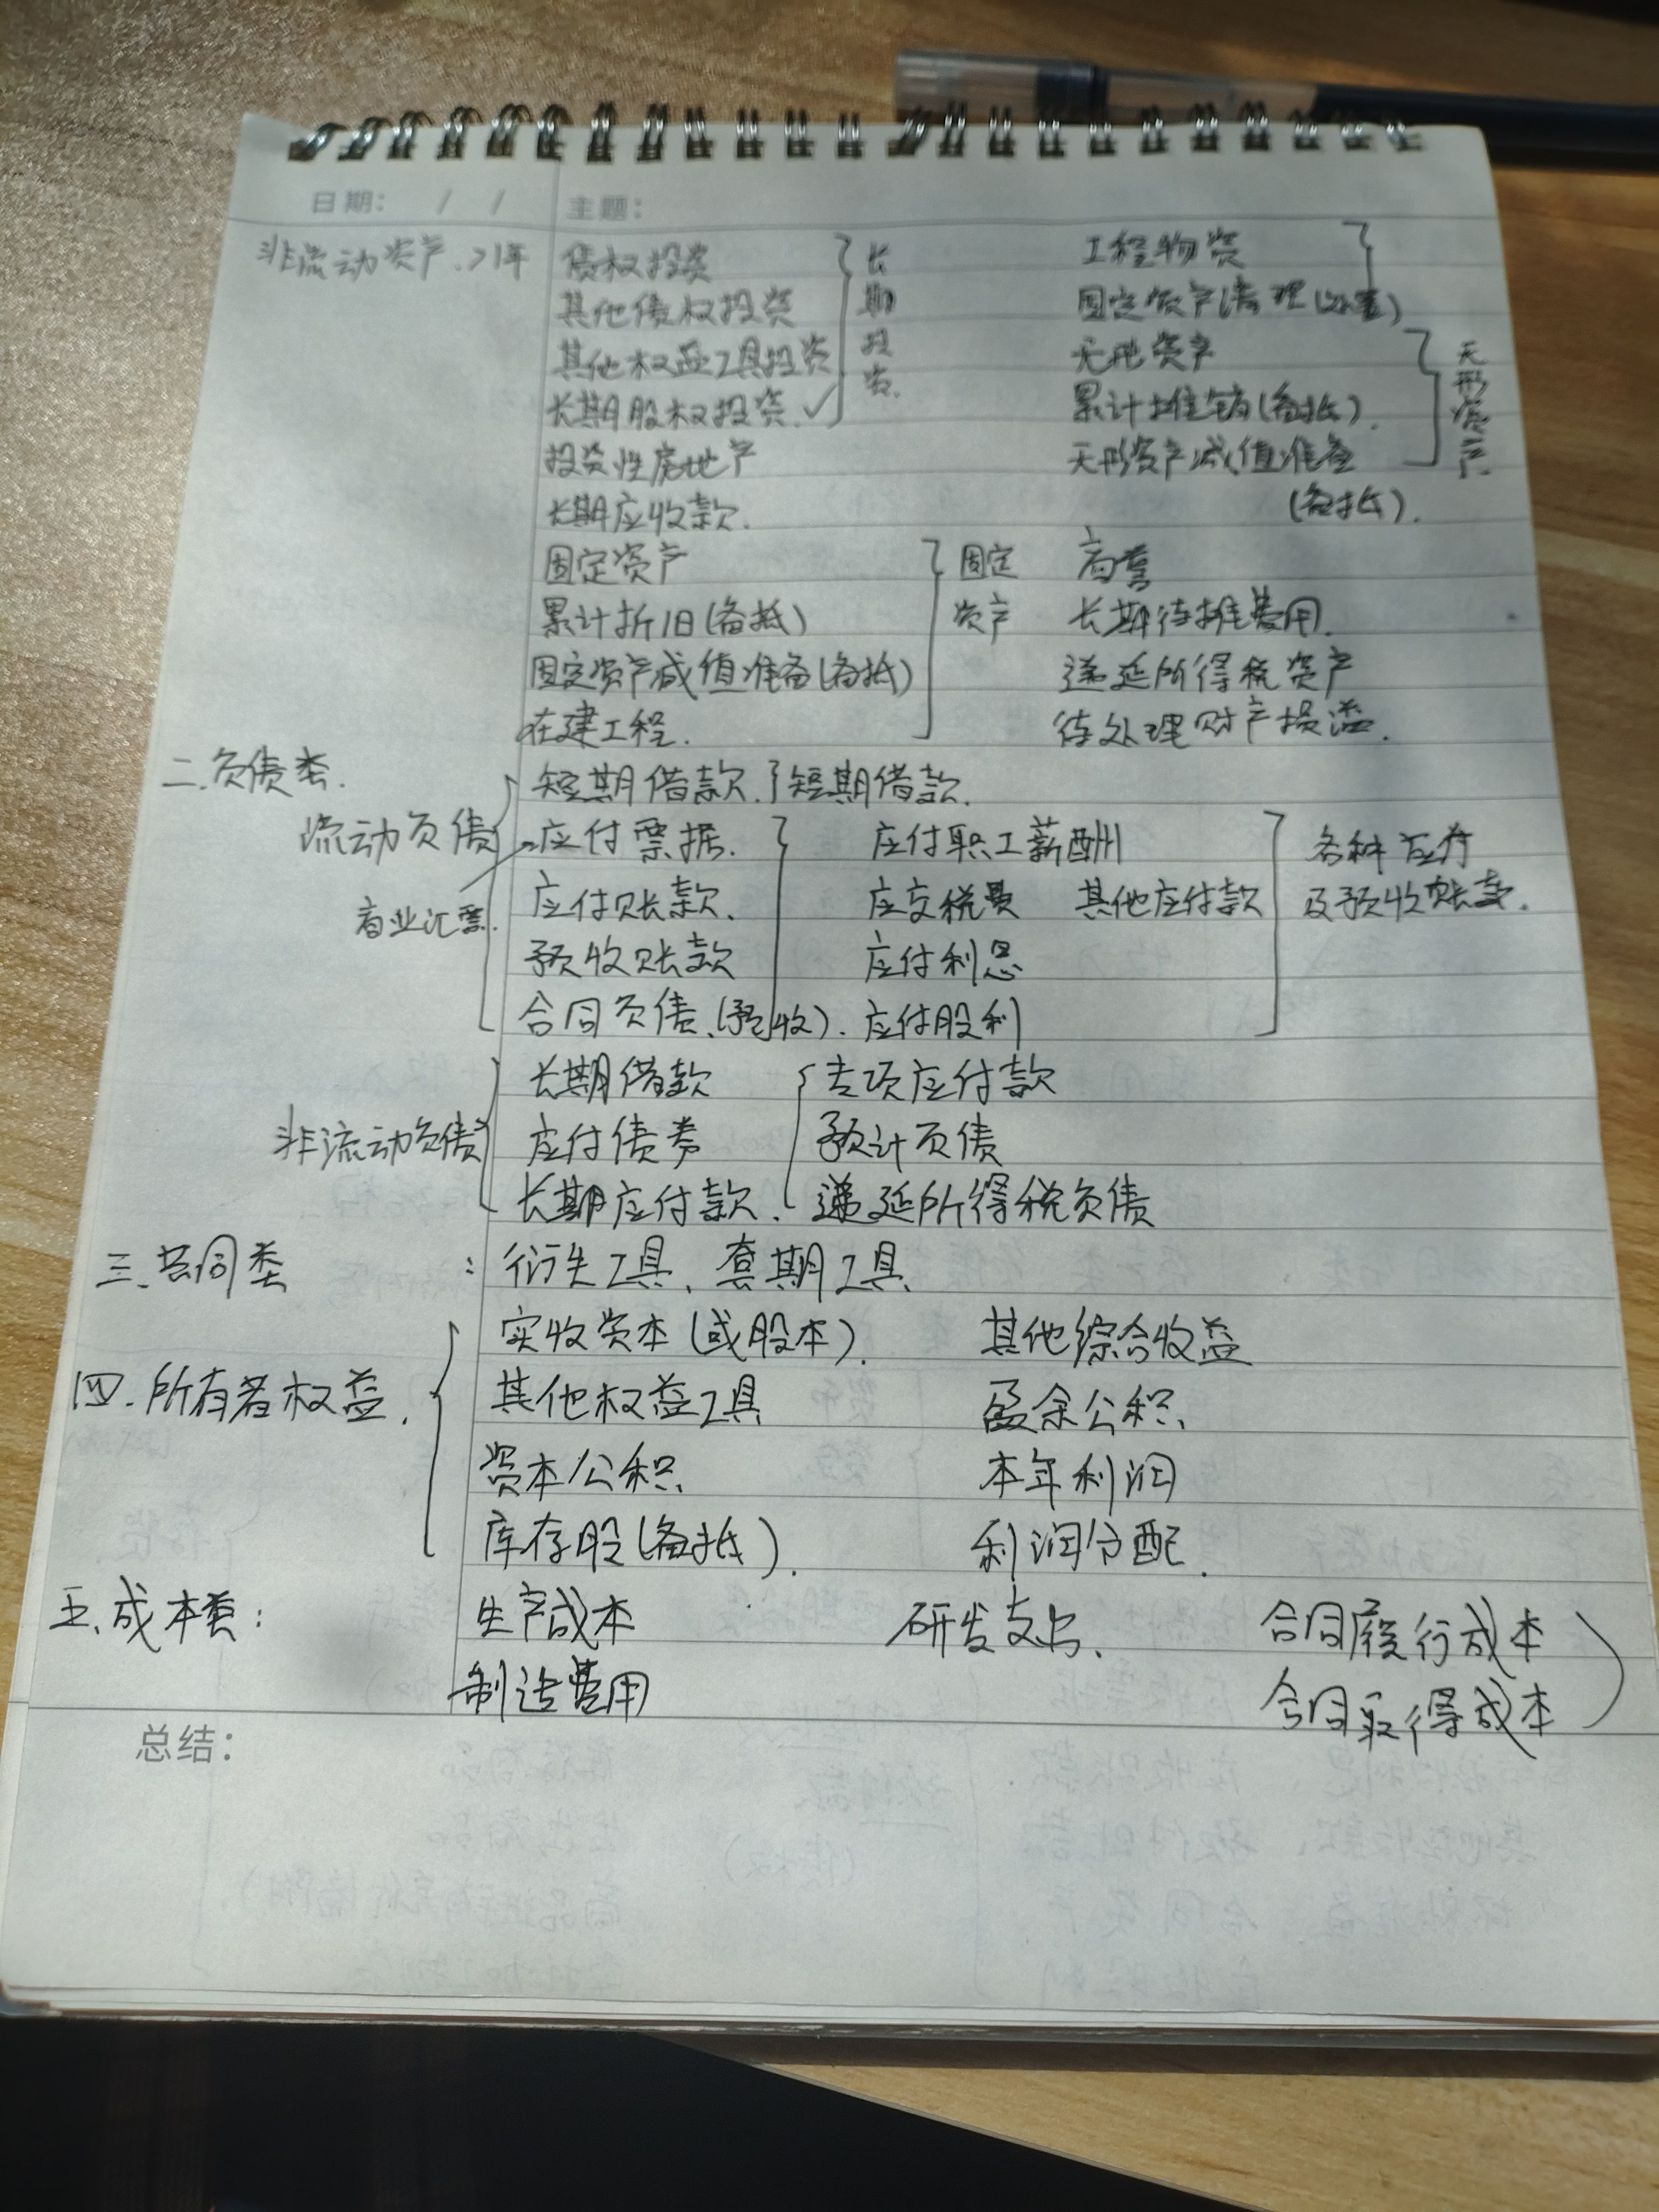 日期: / / 主题:
非流动资产.>1年 债权投资 工程物资
其他债权投资 固定资产清理(处置)
其他权益工具投资 无形资产
长期股权投资.✓ 累计摊销(备抵).
长期投资.
投资性房地产 无形资产减值准备
(备抵).
无形资产
长期应收款.
固定资产 固定 商誉
累计折旧(备抵) 资产 长期待摊费用.
固定资产减值准备(备抵) 递延所得税资产
在建工程. 待处理财产损溢.
二.负债类. 短期借款. 短期借款.
流动负债 应付票据. 应付职工薪酬 各种应付
商业汇票. 应付账款. 应交税费 其他应付款 及预收账款.
预收账款 应付利息
合同负债.(预收). 应付股利
长期借款 专项应付款
非流动负债 应付债券 预计负债
长期应付款. 递延所得税负债
三.共同类 : 衍生工具、套期工具.
实收资本(或股本). 其他综合收益
四.所有者权益. 其他权益工具 盈余公积.
资本公积. 本年利润
库存股(备抵). 利润分配.
五.成本类: 生产成本 研发支出. 合同履行成本
制造费用 合同取得成本
总结: